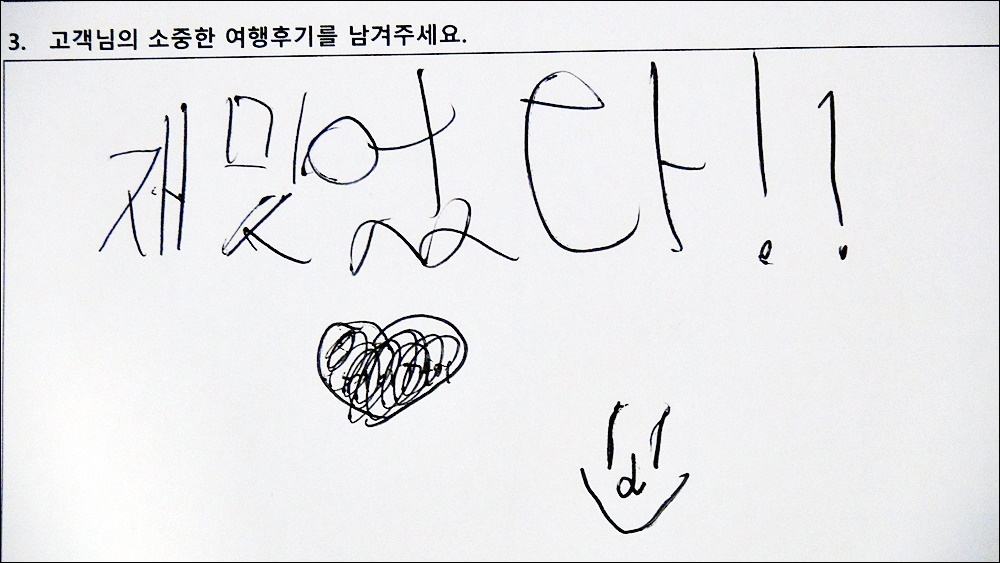 3. 고객님의 소중한 여행후기를 남겨주세요.
재밌었다!!